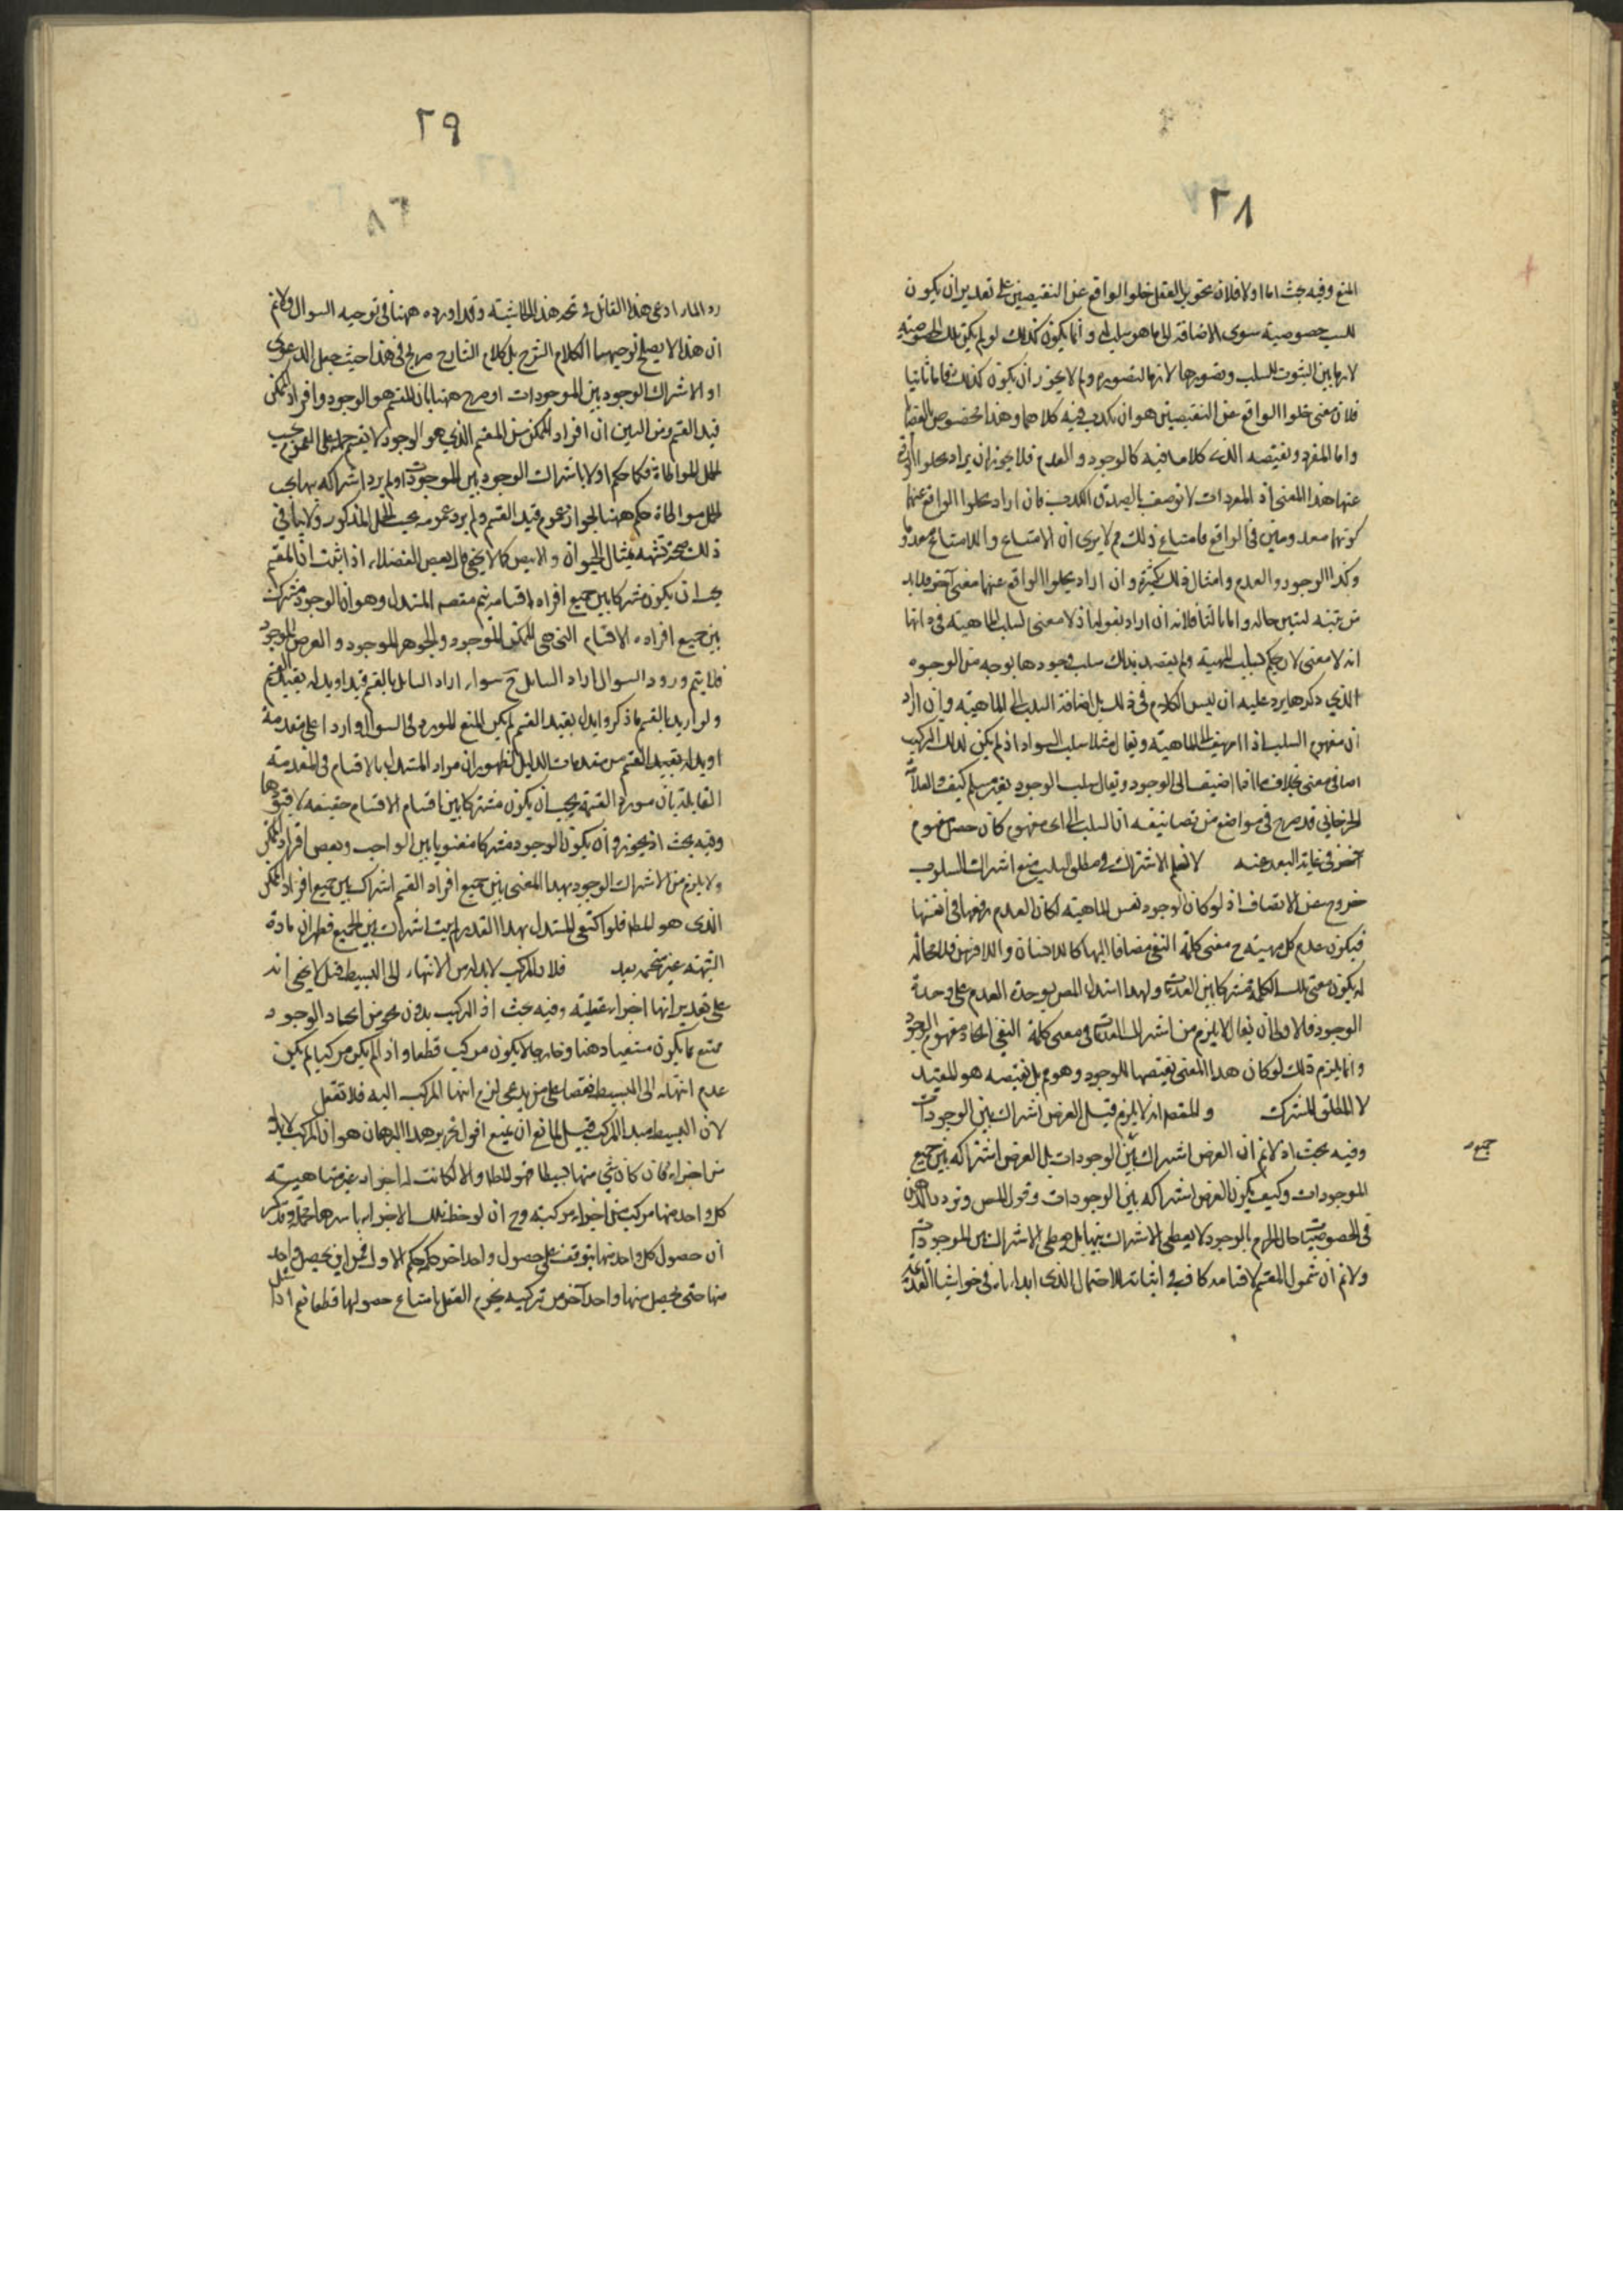 ٢٨
المنع وفيه بحث اما اولا فلان تجويز العقل خلو الواقع عن النقيضين على تقدير ان يكون
للسلب خصوصية سوى الاضافة الى ما هو سلب له وانما يكون كذلك لو لم يكن تلك الخصوصية
لازما بين الثبوت للسلب وتصورها لازما لتصوره ولم لا يجوز ان يكون كذلك واما ثانيا
فلان معنى خلو الواقع عن النقيضين هو ان يكذب فيه كلاهما وهذا مخصوص بالقضايا
واما المفرد ونقيضه الذى كلامنا فيه كالوجود والعدم فلا يجوز ان يراد بخلو الواقع
عنهما هذا المعنى اذ المفردات لا توصف بالصدق والكذب فان اراد بخلو الواقع عنهما
كونهما معدومين فى الواقع فامتناع ذلك مم الا يرى ان الامتناع واللاامتناع معدوما
وكذا الوجود والعدم وامثال ذلك كثيرة وان اراد بخلو الواقع عنهما معنى آخر فلابد
من تبينه ليتبين حاله واما ثالثا فلانه ان اراد بقوله اذ لا معنى لسلب الماهية فى ذاتها
انه لا معنى لان يحكم بسلب المهية ولم يقصد بذلك سلب وجودها بوجه من الوجوه
الذي ذكرها يرد عليه ان ليس الكلام فى ذلك بل اضافة السلب الى الماهية وان اراد
ان مفهوم السلب اذا اضيف الى الماهية ويقال مثلا سلب السواد اذ لم يكن لذلك المركب
اضافى معنى بخلاف ما اذا اضيف الى الوجود ويقال سلب الوجود فغير مسلم كيف والعلامة
الجرجانى قد صرح فى مواضع من تصانيفه ان السلب الى اى مفهوم كان حصل مفهوم
آخر فى غاية البعد عنه لا نعلم الاشتراك فى مطلق السلب منع اشتراك السلوب
خروج عن الانصاف اذ لو كان الوجود نفس الماهية لكان العدم رفعها فى انفسها
فيكون عدم كل مهية ح معنى كلمة النفى مضافا اليها كاللاانسان واللافرس فلا محالة
له يكون معنى تلك الكلمة مشتركا بين العدمات ولهذا استدل المص بوحدة العدم على وحدة
الوجود فالاولى ان يقال لا يلزم من اشتراك العدمات فى معنى كلمة النفى اتحاد مفهوم الوجود
وانما يلزم ذلك لو كان هذا المعنى نقيضها للوجود وهو مم بل نقيضه هو المقيد
لا المطلق المشترك والمقصد انه لا يلزم قيل الغرض اشتراك بين الوجودات
وفيه بحث اذ لا نم ان الغرض اشتراك بين الوجودات بل الغرض اشتراكه بين جميع
جميع
الموجودات وكيف يكون الغرض اشتراكه بين الوجودات وقول المص وتردد الذهن
فى الخصوصيات حال الجزم بالوجود لا يعطى الاشتراك بينها بل يعطى الاشتراك بين الموجودات
ولا نم ان شمول المقسم لاقسامه كاف فى اثباته للاحتمال الذى ابداه فى حواشيه القديمة
٢٩
رد المار ادعى هذا القائل فى تحرير هذه الحاشية وقد اورده ههنا فى توجيه السوال ولا نم
ان هذا لا يصلح توجيها لكلام الشرح بل كلام الشارح صريح فى هذا حيث جعل الدعوى
اولا اشتراك الوجود بين الموجودات او صرح ههنا بان المقسم هو الوجود وافراد الممكن
قيد القسم ومن البين ان افراد الممكن من المقسم الذي هو الوجود لا يقسم حمله على العموم بحسب
الحمل المواطاة فكما حكم اولا باشتراك الوجود بين الموجودات ولم يرد اشتراكه بها بحسب
الحمل مواطاة حكم ههنا بجواز عموم قيد القسم ولم يرد عمومه بحسب الحمل المذكور ولا ينافى
ذلك صحة تشبيه بمثال الحيوان والابيض كما لا يخفى قال بعض الفضلاء اذ اثبت ان المقسم
يجب ان يكون مشتركا بين جميع افراد اقسامه تم مقصد المستدل وهو ان الوجود مشترك
بين جميع افراده الاقسام التى هى الممكن الموجود والجوهر الموجود والعرض الموجود
فلا يتم ورود السوال اراد السايل ح سواء اراد السايل بالقسم قيدا او بدله بقيد القسم
ولو اريد بالقسم ما ذكر وابدل بقيد القسم لم يكن المنع المورد فى السوال واردا على مقدمة
او بدله بقيد القسم من مقدمات الدليل لظهور ان مراد المستدل بالاقسام فى المقدمة
القايلة بان مورد القسمة يجب ان يكون مشتركا بين اقسام الاقسام حقيقة لا قيودها
وفيه بحث اذ يجوز ان يكون الوجود مشتركا معنويا بين الواجب وبعض افراد الممكن
ولا يلزم من الاشتراك الوجود بهذا المعنى بين جميع افراد القسم اشتراك بين جميع افراد الممكن
الذى هو المط فلو اكتفى المستدل بهذا القدر لم يثبت اشتراك بين الجميع فظهر ان مادة
الشبهة غير منحسمة بعد فلان المركب لابد له من الانتهاء الى البسيط قيل لا يخفى انه
على تقدير انها اجزاء عقلية وفيه بحث اذ التركيب بدون نحو من اتحاد الوجود
ممتنع بما يكون متعينا ذهنا وخارجا لا يكون مركب قطعا واذا لم يكن مركبا لم يكن
عدم انتهائه الى البسيط نقضا على من يدعى لزوم انتهاء المركب اليه فلا تغفل
لان البسيط مبدا المركب قيل للمانع ان يمنع اقول تحرير هذا البرهان هو ان المركب لابد له
من اجزاء فان كان شئ منها بسيطا فهو المط والا لكانت له اجزاء غير متناهية
كل واحد منها مركب من اجزاء مركبة وح ان لوحظ تلك الاجزاء باسرها جملة وتذكر
ان حصول كل واحد منها يتوقف على حصول واحد آخر حكمه حكم الاول فمن اين يحصل واحد
منها حتى يحصل منها واحد آخر من تركيبه يجزم العقل بامتناع حصولها قطعا نعم اذا